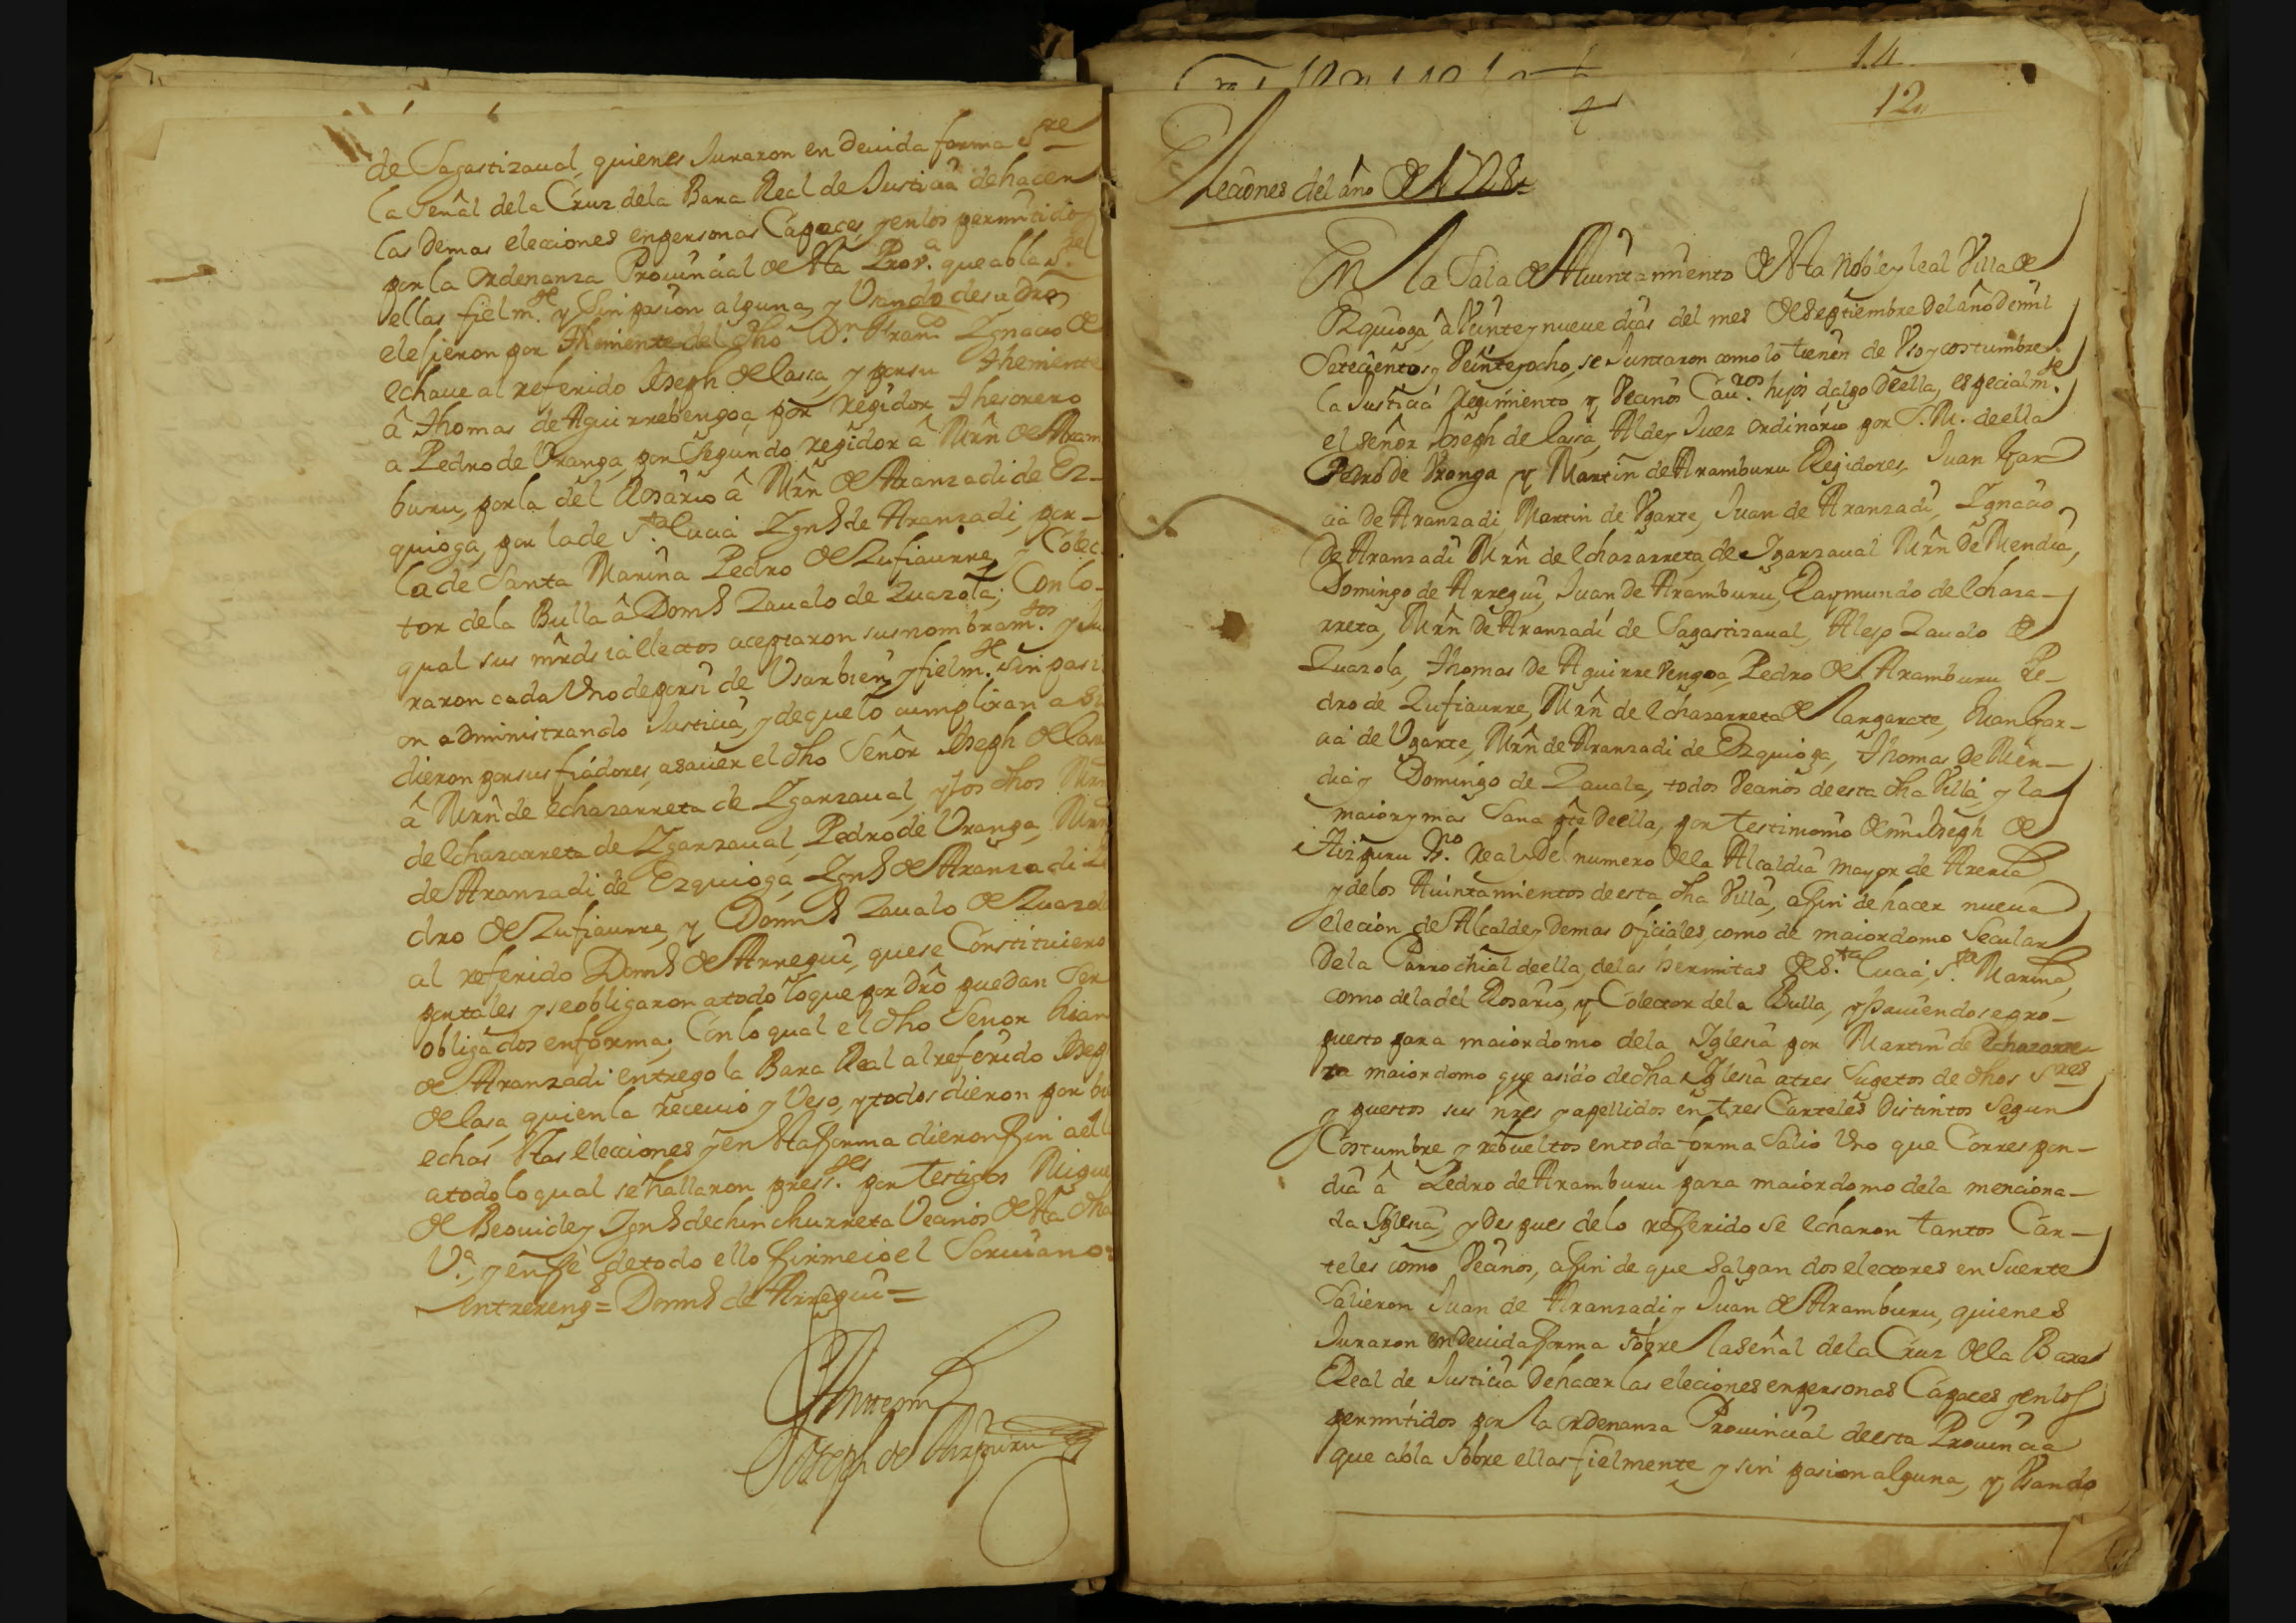 de Sagastizaual, quienes Juraron en deuida forma Sre
la Señal dela Cruz dela Bara Real de Justicia de hacer
las demas elecciones en personas Capaces, y en los permitidos
por la ordenanza Prouincial de esta Prova. que abla
ellas fielmte. y Sin pasion alguna, y Usando de su dro
elesieron por Theniente del dho Dn. Frano Ignacio de
echaue al referido Joseph de lassa, y por su Theniente
â Thomas de Aguirrebengoa, por regidor Thesorero
a Pedro de Vranga, por Segundo regidor â Mrñ de Aram
buru, por la del Rosario â Mrñ de Aranzadi de Ez-
quioga, por la de Sta. Lucia Igno de Aranzadi, por -
la de Santa Marina Pedro de Zufiaurre, y Colec
tor dela Bulla â Domo Zaualo de Zuazola; Con lo-
qual sus mrds ia electos aceptaron sus nombramtos. y Ju
raron cada Uno de por si de Usar bien, y fielmte. sin pasi
on administrando Justicia, y de que lo cumpliran a si
dieron por sus fiadores, asauer el dho Señor Joseph de lasa
â Mrñ de echazarreta de Igarzaual, y los dhos Mrñ
de echazarreta de Igarzaual, Pedro de Vranga, Mrñ
de Aranzadi de Ezquioga, Igno de Aranzadi Pe
dro de Zufiaurre, y Domo Zaualo de Zuazol
al referido Domo de Arregui, que se Constituiero
por tales y se obligaron a todo lo que por dro puedan Ser
obligados en forma; Con lo qual el dho Señor Juan
de Aranzadi entrego la Bara Real al referido Joseph
de lasa, quien la receuio y Veso, y todos dieron por bi
echas estas elecciones y en esta forma dieron fin a ell
a todo lo qual se hallaron presstes. por testigos Migue
de Beouide y Igno de chinchurreta Vecinos de esta dha
Va., y en fe de todo ello firme io el Scriuano=
entrereng= Domo de Arregui=
Arregui
Joseph de Aizpuru
14
12
Elecciones del año de 1728
En la Sala de Aiuntamiento de esta Noble y leal Villa de
Ezquioga, â Veinte y nueue dias del mes de Septiembre del año de mil
Setecientos y Veinte y ocho, se Juntaron como lo tienen de Vso y costumbre
la Justicia Regimiento y Vecinos Cauros. hijos dalgo de ella, especialmte.
el señor Joseph de lassa, Alde y Juez ordinario por S.M. de ella
Pedro de Vranga y Martin de Aramburu Regidores, Juan Gar
cia de Aranzadi, Martin de Vgarte, Juan de Aranzadi, Ignacio
de Aranzadi Mrñ de echazarreta, de Igarzaual Mrñ de Mendia,
Domingo de Arregui, Juan de Aramburu, Raymundo de echaza-
rreta, Mrñ de Aranzadi de Sagastizaual, Alejo Zaualo de
Zuazola, Thomas de Aguirrebengoa, Pedro de Aramburu Pe-
dro de Zufiaurre, Mrñ de echazarreta de langarate, Juan Gar-
cia de Vgarte, Mrñ de Aranzadi de Ezquioga, Thomas de Men-
dia y Domingo de Zauala, todos Vecinos de esta dha Villa, y la
maior y mas Sana pte de ella, por testimonio de mi Joseph de
Aizpuru Sno. real y del numero de la Alcaldia mayor de Areria
y de los Aiuntamientos de esta dha Villa, afin de hacer nueua
elecion de Alcalde y demas oficiales, como de maiordomo Secular
de la Parrochial de ella, de las hermitas de Sta. Lucia, Sta. Marina,
como dela del Rosario, y Colector dela Bulla, y hauiendose pro-
puesto para maiordomo dela Iglesia por Martin de echazarre
ta maiordomo que a sido de dha Iglesia a tres Sugetos de dhos Sres
y puestos sus nres y apellidos en tres Carteles distintos Segun
Costumbre y rebueltos en toda forma Salio Uno que Correspon-
dia â Pedro de Aramburu para maiordomo dela menciona-
da Iglesia, y despues de lo referido se echaron tantos Car-
teles como Vecinos, afin de que Salgan dos electores en Suerte
Salieron Juan de Aranzadi y Juan de Aramburu, quienes
Juraron en deuida forma Sobre la Señal de la Cruz de la Bara
Real de Justicia de hacer las eleciones en personas Capaces y en los
permitidos por la ordenanza Prouincial de esta Prouincia
que abla Sobre ellas fielmente y sin pasion alguna, y Vsando